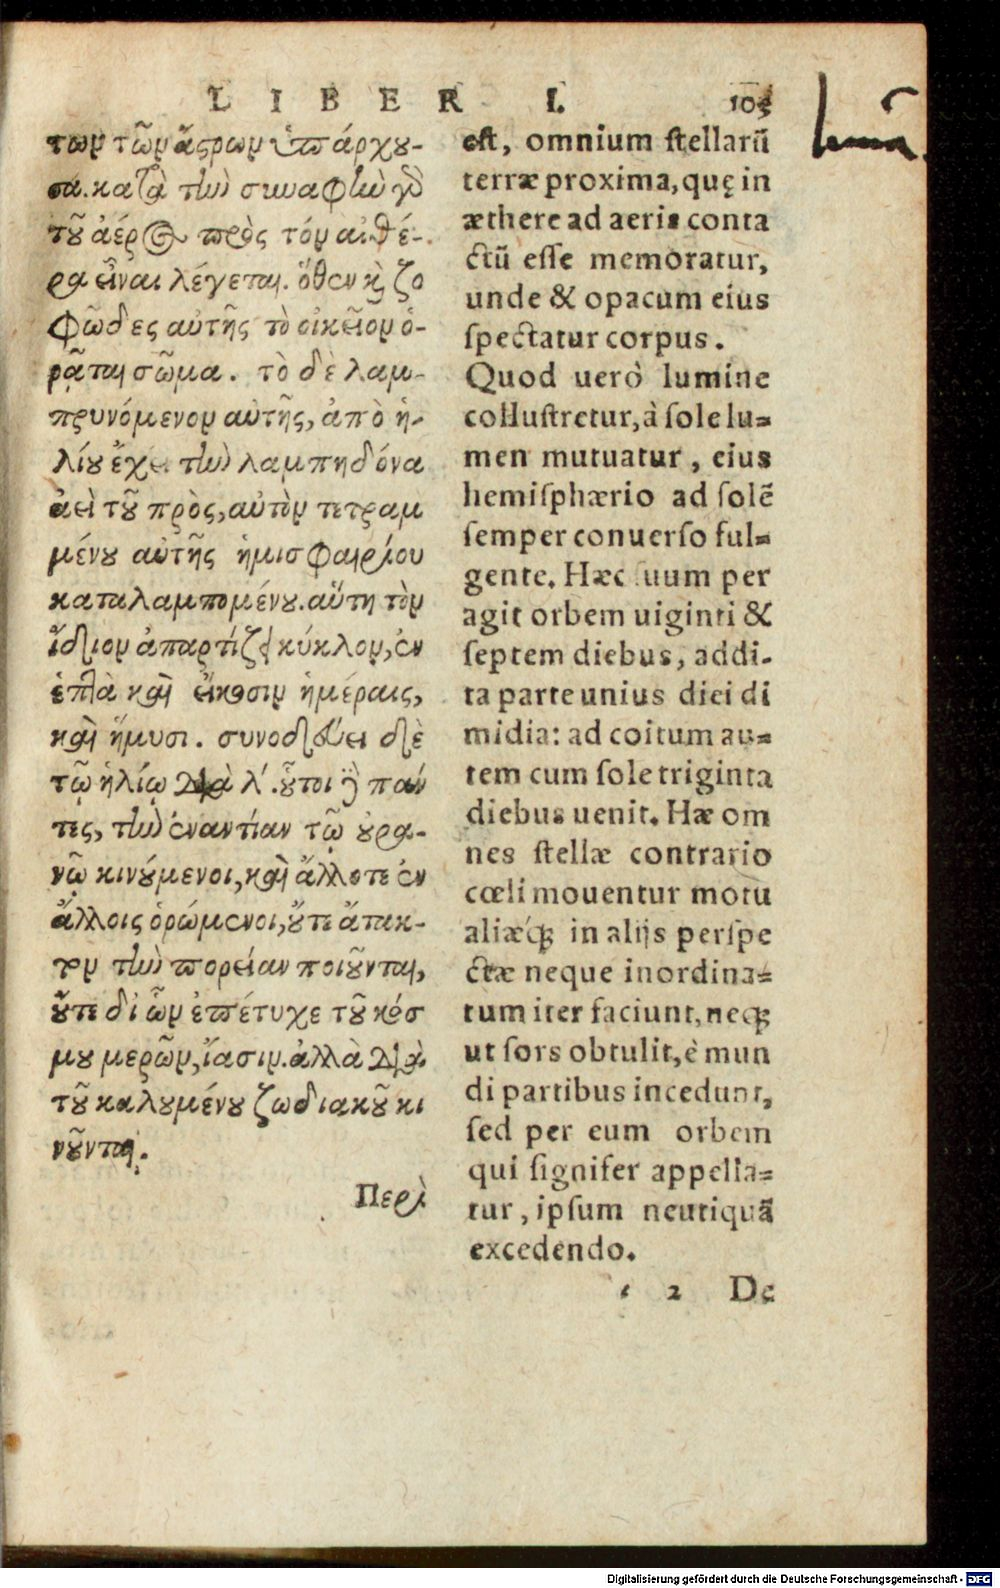 LIBER I. 105
των τῶν ἄςρων ὑπάρχου-
σα. κατὰ τὴν συναφὴν γὸ
τοῦ ἀέρος πρὸς τόν αἰθέ-
ρα εἶναι λέγεται. ὅθεν καὶ ζο
φῶδες αὐτῆς τὸ οἰκεῖον ὁ-
ρᾶται σῶμα. τὸ δὲ λαμ-
πρυνόμενον αὐτῆς, ἀπὸ ἡ-
λίου ἔχει τὴν λαμπηδόνα
ἀεὶ τοῦ πρὸς, αὐτὸν τετραμ
μένου αὐτῆς ἡμισφαιρίου
καταλαμπομένου. αὕτη τὸν
ἴδιον ἀπαρτίζει κύκλον, ἐν
ἑπτὰ καὶ εἴκοσιν ἡμέραις,
καὶ ἥμυσι. συνοδεύει δὲ
τῷ ἡλίῳ διὰ λ´. οὗτοι δὲ πάν
τες, τὴν ἐναντίαν τῷ οὐρα-
νῷ κινούμενοι, καὶ ἄλλοτε ἐν
ἄλλοις ὁρώμενοι, οὔτε ἄτακ-
τον τὴν πορείαν ποιοῦνται,
οὔτε δι ὧν ἐπέτυχε τοῦ κόσ
μου μερῶν, ἴασιν. ἀλλὰ διὰ
τοῦ καλουμένου ζωδιακοῦ κι
νοῦνται.
Περὶ
est, omnium stellarũ
terræ proxima, quę in
æthere ad aeris conta
ctũ esse memoratur,
unde & opacum eius
spectatur corpus.
Quod uerò lumine
collustretur, à sole lu=
men mutuatur, eius
hemisphærio ad solẽ
semper conuerso ful=
gente. Hæc suum per
agit orbem uiginti &
septem diebus, addi-
ta parte unius diei di
midia: ad coitum au=
tem cum sole triginta
diebus uenit. Hæ om
nes stellæ contrario
cœli mouentur motu
aliæq́ꝫ in alijs perspe
ctæ neque inordina=
tum iter faciunt, neqꝫ
ut sors obtulit, è mun
di partibus incedunt,
sed per eum orbem
qui signifer appella=
tur, ipsum neutiquã
excedendo.
2 De
luna.
Digitalisierung gefördert durch die Deutsche Forschungsgemeinschaft - DFG